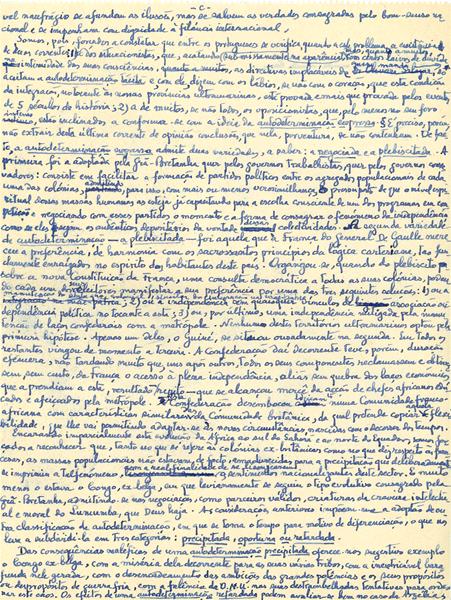 - C -
vel naufrágio se afundam as ilusões, mas se salvem as verdades consagradas pelo bom-senso ra-
cional e se imponham com dignidade à falência internacional.
Somos, pois, forçados a constatar que entre os portugueses se verifica quanto a este problema a existência
de duas correntes: 1) a dos situacionistas, que, acatando
intimidade das suas consciências, quanto a muitos, as directrizes implacáveis do
aceitam a autodeterminação tácita e com ele, dizem com os lábios, se não com o coração, que esta condição
da integração, no tocante às nossas províncias ultramarinas, está provada e mais que provada pelos eventos
de 5 séculos de história; 2) a de muitos, se não todos, os oposicionistas, que, pelo menos no seu foro
íntimo estão inclinados a conformar-se com a ideia da autodeterminação expressa. É preciso, porém,
não extrair desta última corrente de opinião conclusão, que nela, porventura, se não contenham. De fac-
to, a autodeterminação expressa admite duas variedades, a saber: a negociada e a plebiscitada. A
primeira foi a adoptada pela Grã-Bretanha quer pelos governos Trabalhistas, quer pelos governos conser-
vadores: consiste em facilitar a formação de partidos políticos entre os agregados populacionais de cada
uma das colónias, admitindo para isso, com mais ou menos verosimilhança, o pressuposto de que o nível espi-
ritual dessas massas humanas as esteja já capacitando para a escolha consciente de um dos programas em
e negociando com esses partidos o momento e a forma de consagrar o fenómeno da independência
como se eles fossem os autênticos depositários da vontade dessas colectividades. A segunda variedade
de autodeterminação — a plebiscitada — foi aquela que a França do General De Gaulle mere-
ceu a preferência, de harmonia com os sacrossantos princípios da lógica cartesiana, tão fun-
damente arraigados no espírito dos habitantes deste país. Organizou-se, quando do plebiscito
sobre a nova Constituição da França, uma consulta democrática a todas as suas colónias, poden-
do cada um dos eleitores manifestar a sua preferência por uma das três seguintes soluções: 1)
pátria; 2) ou a independência com quaisquer vínculos de associação ou
dependência política no tocante a esta; 3) ou, por último, uma independência mitigada pela imanên-
cia de laços confederais com a metrópole. Nenhum destes territórios ultramarinos optou pela
primeira hipótese. Apenas um deles, o Guiné, se situou ousadamente na segunda. Em todos os
restantes vingou de momento a terceira. A Confederação daí decorrente teve, porém, duração
efémera e não tardou muito que, uns após outros, todos os seus componentes reclamassem e obtives-
sem, sem custo, da França o acesso à plena independência, aliás sem quebra dos laços económicos
que a prendiam a esta, resultado que se alcançou mercê da acção de chefes africanos edu-
cados e afeiçoados pela metrópole. A Confederação desembocou numa Comunidade franco-
africana com características similares às da Comunidade Britânica, da qual pretende copiar a flexi-
bilidade, que lhe vai permitindo adaptar-se às novas circunstâncias, marcadas com o decorrer dos tempos.
Encarando imparcialmente esta evolução da África ao sul do Sahara e ao norte do Equador, somos for-
çados a reconhecer que, tanto no que se refere às colónias ex-britânicas como no que diz respeito às fran-
cesas, as massas populacionais não estavam, de facto, amadurecidas para a precipitação que deliberadamente
se imprimiu a tal fenómeno. O sentimento nacional ausente deste sector e muito
menos o estava o Congo, ex-belga, em que levianamente se seguiu o tipo evolutivo consagrado pela
Grã-Bretanha, admitindo-se nas negociações, como parceiros válidos, criaturas da craveira intelectu-
al e moral do Lumumba, que Deus haja. As considerações anteriores impõem-nos a adopção de ou-
tra classificação de autodeterminação, em que se toma o tempo para motivo de diferenciação, o que nos
leva a subdividi-la em três categorias: precipitada, oportuna ou retardada.
Das consequências maléficas de uma autodeterminação precipitada oferece-nos sugestivo exemplo
o Congo ex-belga, com a miséria dela decorrente para as suas várias tribos, com a inextricável bara-
funda nele gerada, com o desencadeamento das ambições das grandes potências e os seus propósitos
ou despropósitos de guerra fria, com a falência da O.N.U. nas destrambelhadas tentativas para orde-
nar este caos. Os efeitos de uma autodeterminação retardada podem avaliar-se bem no caso da Argélia